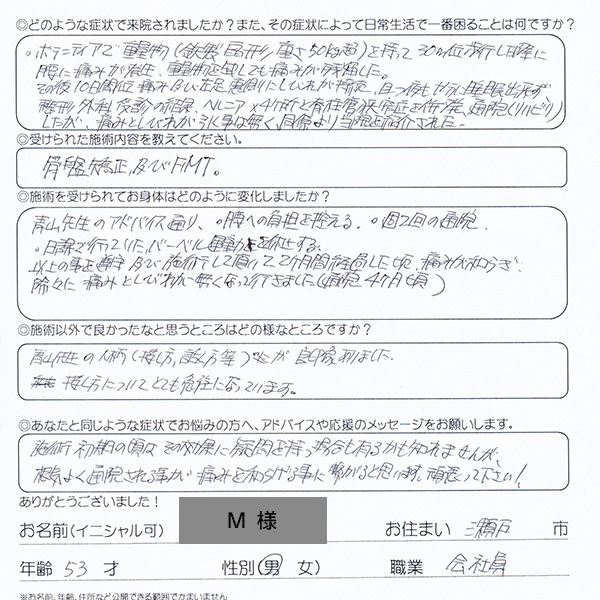 ◎どのような症状で来院されましたか?また、その症状によって日常生活で一番困ることは何ですか?
・ボランティアで重量物(鉄製 重さ50kg超)を持って30m位歩行した時に
腰に痛みが発生、重量物を無しても痛みが残りました。
その後10日間位痛み及び左足裏側にしびれが 、且つ夜もせずに睡眠出来ず
整形外科受診の結果、ヘルニア×4ヶ所と脊柱管狭窄症を併発、通院(リハビリ)
したが、痛みとしびれが引く事は無く、 より当院を紹介された。
◎受けられた施術内容を教えてください。
骨盤矯正及びFMT。
◎施術を受けられてお身体はどのように変化しましたか?
青山先生のアドバイス通り、 ○腰への負担を控える。 ○週2回の通院
○日課で行っていたバーベル運動を休止する。
以上の事を 及び施術して頂いて2ヶ月間経過した頃、痛みが和らぎ、
除々に痛みとしびれが無くなって行きました(通院4ヶ月頃)
◎施術以外で良かったなと思うところはどの様なところですか?
青山先生の人柄(接し方、話し方等)とかが良印象 ました。
接し方についてとても になっています。
◎あなたと同じような症状でお悩みの方へ、アドバイスや応援のメッセージをお願いします。
施術初期の頃は その効果に疑問を持つ場合も有るかも知れませんが、
根気よく通院される事が痛みを和らげる事に繋がると思います。頑張って下さい!
ありがとうございました!
お名前(イニシャル可) M 様 お住まい 瀬戸 市
年齢 53 才 性別(男 女) 職業 会社員
※お名前、年齢、住所など公開できる範囲でかまいません